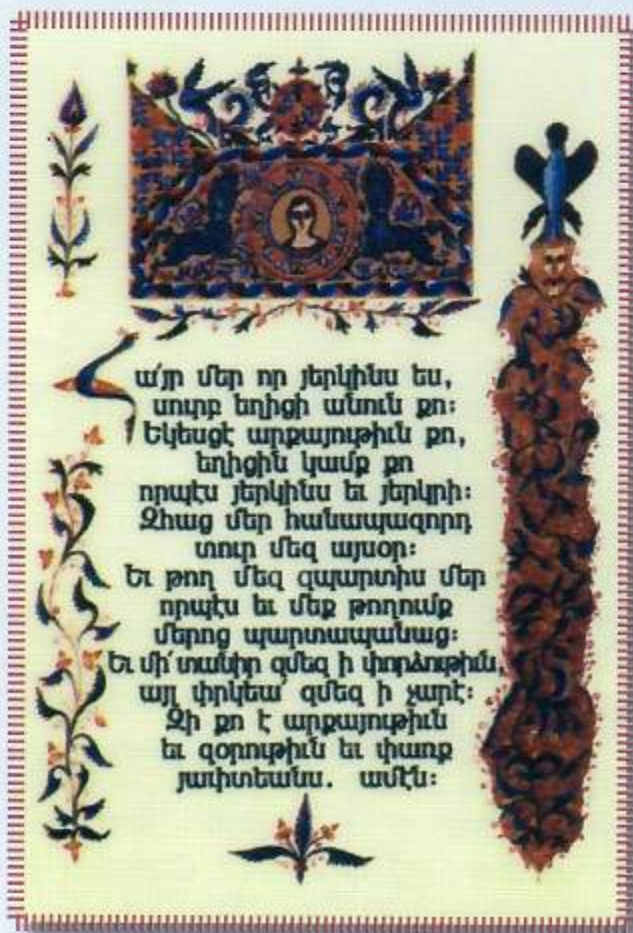 Հա՛յր մեր որ յերկինս ես,
սուրբ եղիցի անուն քո:
Եկեսցէ արքայութիւն քո,
եղիցին կամք քո
որպէս յերկինս եւ յերկրի:
Զհաց մեր հանապազորդ
տուր մեզ այսօր:
Եւ թող մեզ զպարտիս մեր
որպէս եւ մեք թողումք
մերոց պարտապանաց:
Եւ մի՛ տանիր զմեզ ի փորձութիւն,
այլ փրկեա՛ զմեզ ի չարէ:
Զի քո է արքայութիւն
եւ զօրութիւն եւ փառք
յաւիտեանս. ամէն: